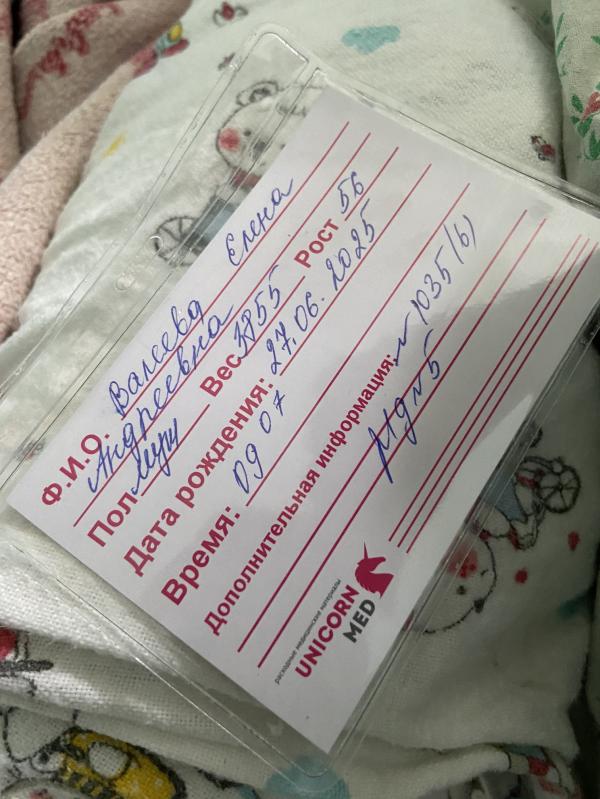 Ф.И.О. Валеева Елена
Андреевна
Пол муж Вес 3855 Рост 56
Дата рождения: 27.06.2025
Время: 09 07
Дополнительная информация: № 1035 (б)
МД №5
расходные медицинские материалы
UNICORN
MED